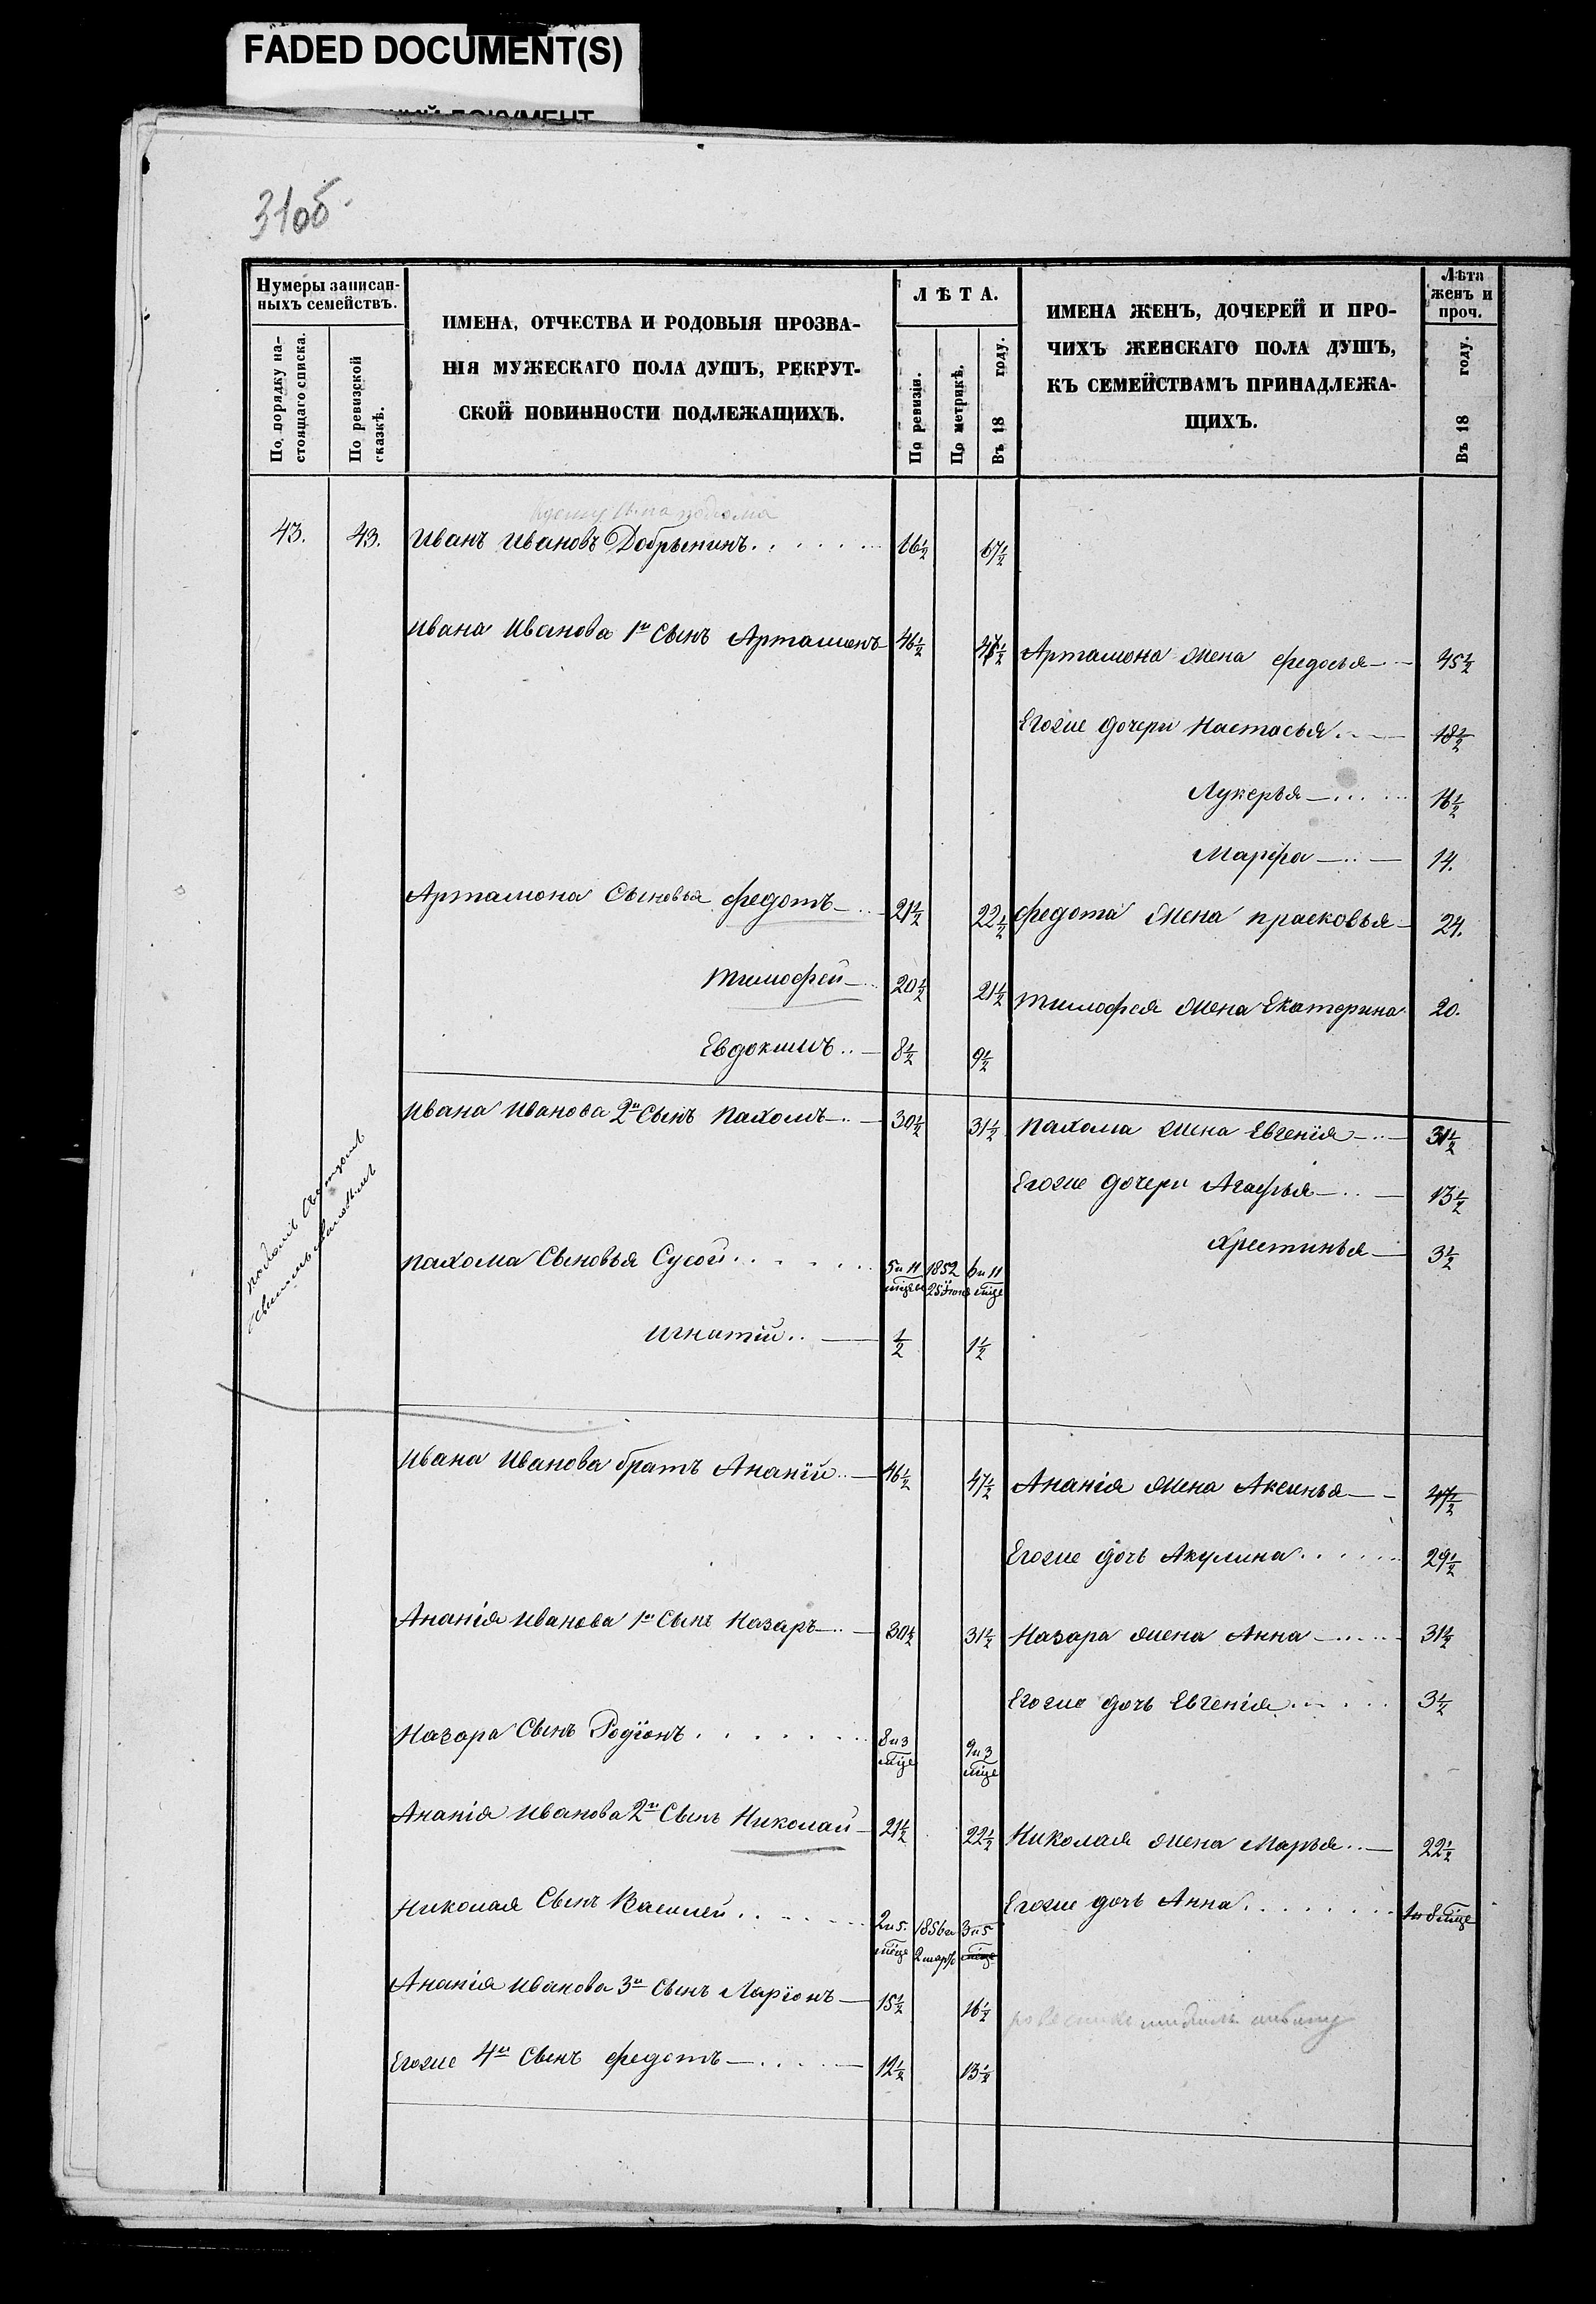 FADED DOCUMENT(S)
31об.
Нумеры записан-
ныхъ семействъ.
По порядку на-
стоящаго списка.
По ревизской
сказкѣ.
ИМЕНА, ОТЧЕСТВА И РОДОВЫЯ ПРОЗВА-
НІЯ МУЖЕСКАГО ПОЛА ДУШЪ, РЕКРУТ-
СКОЙ ПОВИННОСТИ ПОДЛЕЖАЩИХЪ.
ЛѢТА.
По ревизіи.
По метрикѣ.
Въ 18 году.
ИМЕНА ЖЕНЪ, ДОЧЕРЕЙ И ПРО-
ЧИХЪ ЖЕНСКАГО ПОЛА ДУШЪ,
КЪ СЕМЕЙСТВАМЪ ПРИНАДЛЕЖА-
ЩИХЪ.
Лѣта
женъ и
проч.
Въ 18 году.
43. 43. Иванъ Ивановъ Добрынинъ 16½ 17½
Ивана Иванова 1й сынъ Артамонъ 46½ 47½ Артамона жена Федосья 45½
Егоже дочери Настасья 18½
Лукерья 16½
Марфа 14.
Артамона сыновья Федотъ 21½ 22½ Федота жена Прасковья 24.
Тимофей 20½ 21½ Тимофея жена Екатерина 20.
Евдокимъ 8½ 9½
Ивана Иванова 2й сынъ Пахомъ 30½ 31½ Пахома жена Евгенія 31½
Егоже дочери Агафья 13½
Христинья 3½
Пахома сыновья Сусой 5 и 11 1852 6 и 11
Игнатій ½ 1½
Ивана Иванова братъ Ананій 46½ 47½ Ананія жена Аксинья 47½
Егоже дочь Акулина 29½
Ананія Иванова 1й сынъ Назаръ 30½ 31½ Назара жена Анна 31½
Егоже дочь Евгенія 3½
Назара сынъ Родіонъ 8 и 3 мѣце 9 и 3 мѣце
Ананія Иванова 2й сынъ Николай 21½ 22½ Николая жена Марья 22½
Николая сынъ Василей 2 и 5 мѣце 1856 2 мар 3 и 5 мѣце Егоже дочь Анна 1 и 8 мѣце
Ананія Иванова 3й сынъ Ларіонъ 15½ 16½
Егоже 4й сынъ Федотъ 12½ 13½